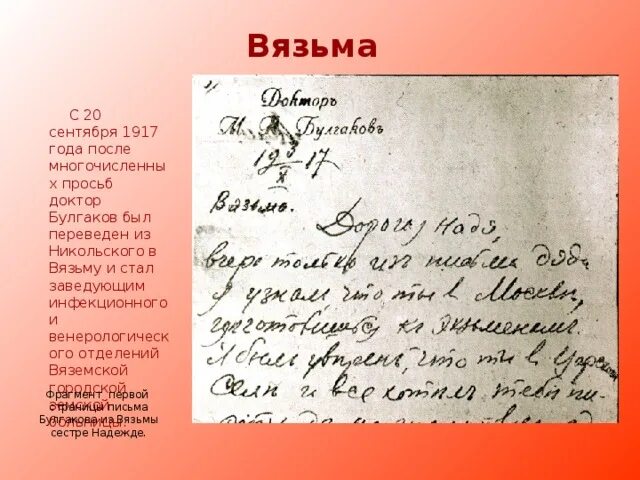 Вязьма
С 20
сентября 1917
года после
многочисленны
х просьб
доктор
Булгаков был
переведен из
Никольского в
Вязьму и стал
заведующим
инфекционного
и
венерологическ
ого отделений
Вяземской
городской
земской
больницы.
Фрагмент первой
страницы письма
Булгакова из Вязьмы
сестре Надежде.
Докторъ
М. А. Булгаковъ
19 3/X 17
Вязьма.
Дорогая Надя,
вчера только изъ письма дяди
я узнал что ты в Москвѣ,
готовишься къ экзаменамъ.
Я былъ увѣренъ, что ты в Царском
Селѣ и все хотѣлъ тебѣ пи-